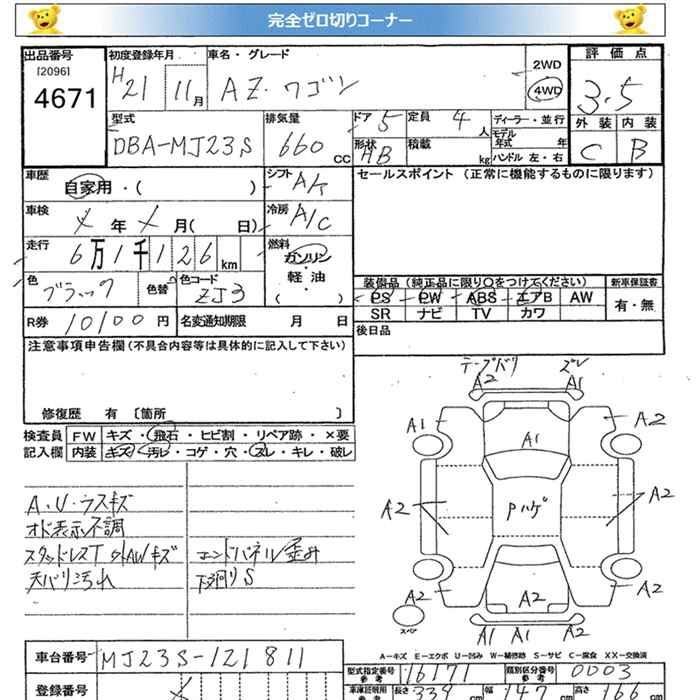 完全ゼロ切りコーナー
出品番号 初度登録年月 車名・グレード 評価点
[2096]
4671
H21 11月 AZ・ワゴン 2WD 4WD 3.5
型式 排気量 ドア 5 定員 4人 ディーラー・並行 外装 内装
DBA-MJ23S 660cc 形状 HB 積載 kg モデル年式 年 ハンドル 左・右 C B
車歴 シフト セールスポイント (正常に機能するものに限ります)
自家用・( ) AT
車検 年 月( 日) 冷房 A/C
走行 6万1千126km 燃料
ガソリン・軽油・( )
色 色替 色コード 装備品 (純正品に限り○をつけてください) 新車保証書
ブラック ZJ3 PS PW ABS エアB AW 有・無
SR ナビ TV カワ
R券 10100円 名変通知期限 月 日 後日品
注意事項申告欄(不具合内容等は具体的に記入して下さい)
修復歴 有 〔箇所 〕
テープバリ ズレ
A2 A1
検査員 FW キズ・飛石・ヒビ割・リペア跡・×要
記入欄 内装 キズ・汚レ・コゲ・穴・スレ・キレ・破レ
A1 A2
A1
A・U・ラスキズ
オド表示不調
スタッドレスT 外AWキズ エンドパネル歪み
天バリ汚れ 下廻りS
A2 Pハゲ A2
A2 A2 A2
スペア
A1 A1 A2
A-キズ E-エクボ U-凹み W-補修跡 S-サビ C-腐食 XX-交換済
車台番号 MJ23S-121811
型式指定番号 参考 16171 類別区分番号 参考 0003
登録番号
車庫証明用 参考 長さ 339cm 幅 147cm 高さ 166cm